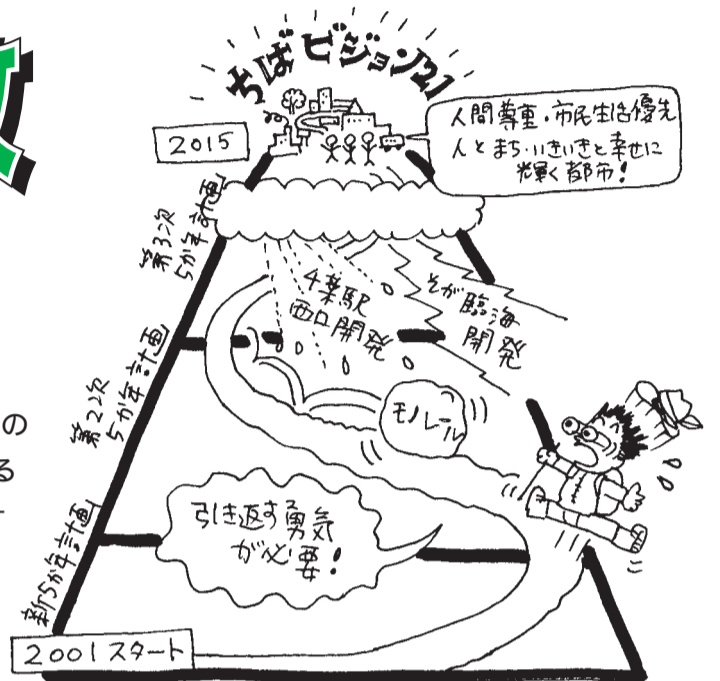 ちばビジョン21
2015
人間尊重・市民生活優先
人とまち・いきいきと幸せに
輝く都市！
第3次
5か年計画
千葉駅
西口開発
そが臨海
開発
第2次
5か年計画
モノレール
の
る
引き返す勇気
が必要！
新5か年計画
2001スタート